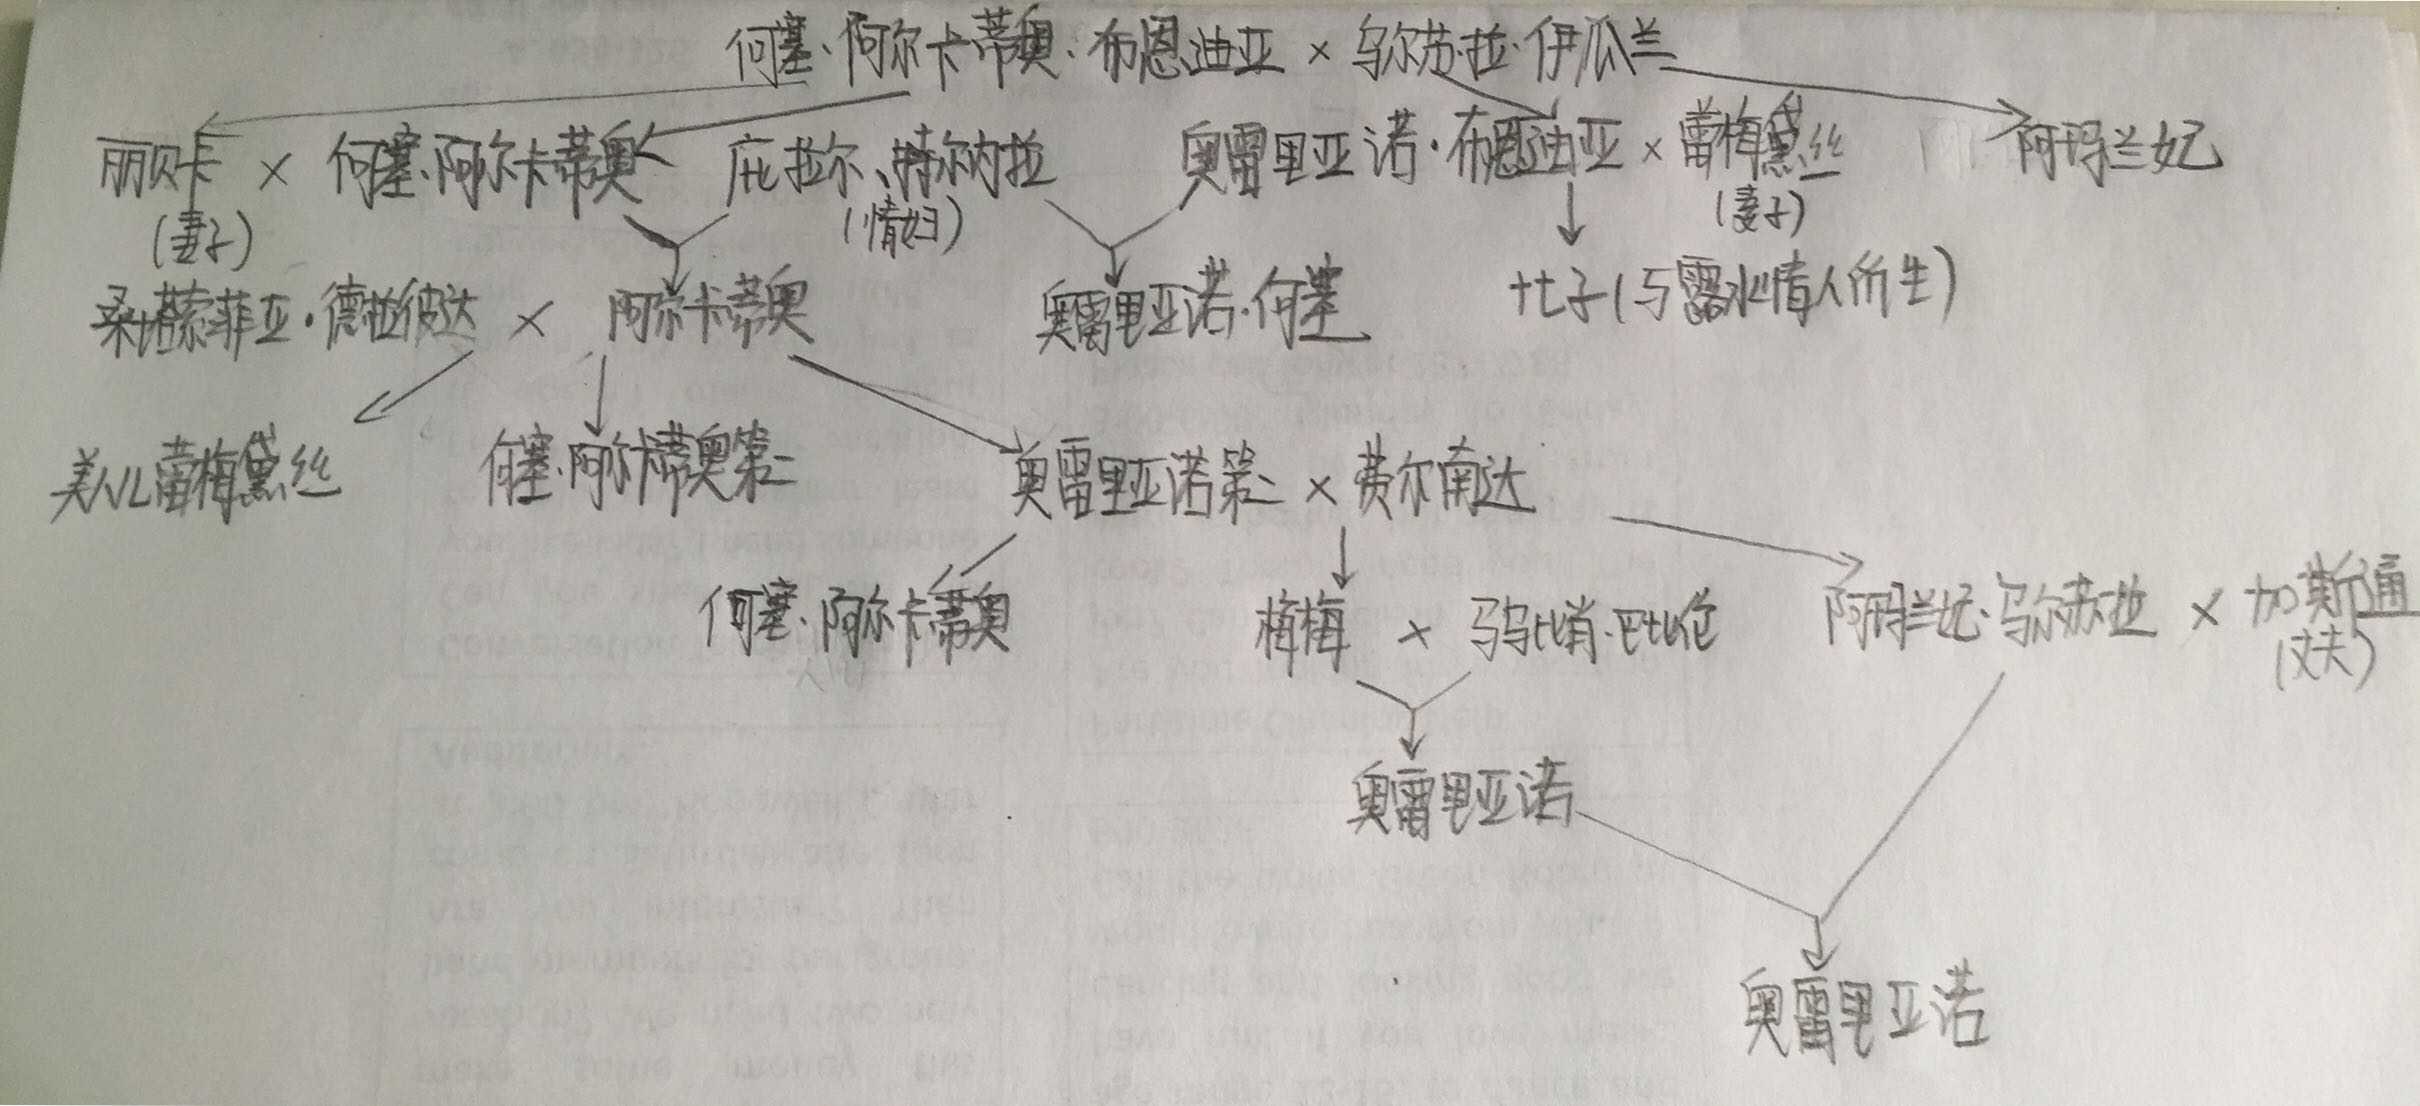 何塞·阿尔卡蒂奥·布恩迪亚 × 乌尔苏拉·伊瓜兰
丽贝卡 × 何塞·阿尔卡蒂奥 庇拉尔、特尔内拉 奥雷里亚诺·布恩迪亚 × 蕾梅黛丝 阿玛兰妲
(妻子) (情妇) (妻子)
桑塔索菲亚·德拉彼达 × 阿尔卡蒂奥 奥雷里亚诺·何塞 十七子(与露水情人所生)
美人儿蕾梅黛丝 何塞·阿尔卡蒂奥第二 奥雷里亚诺第二 × 费尔南达
何塞·阿尔卡蒂奥 梅梅 × 马乌比肖·巴比伦 阿玛兰妲·乌尔苏拉 × 加斯通
(丈夫)
奥雷里亚诺
奥雷里亚诺